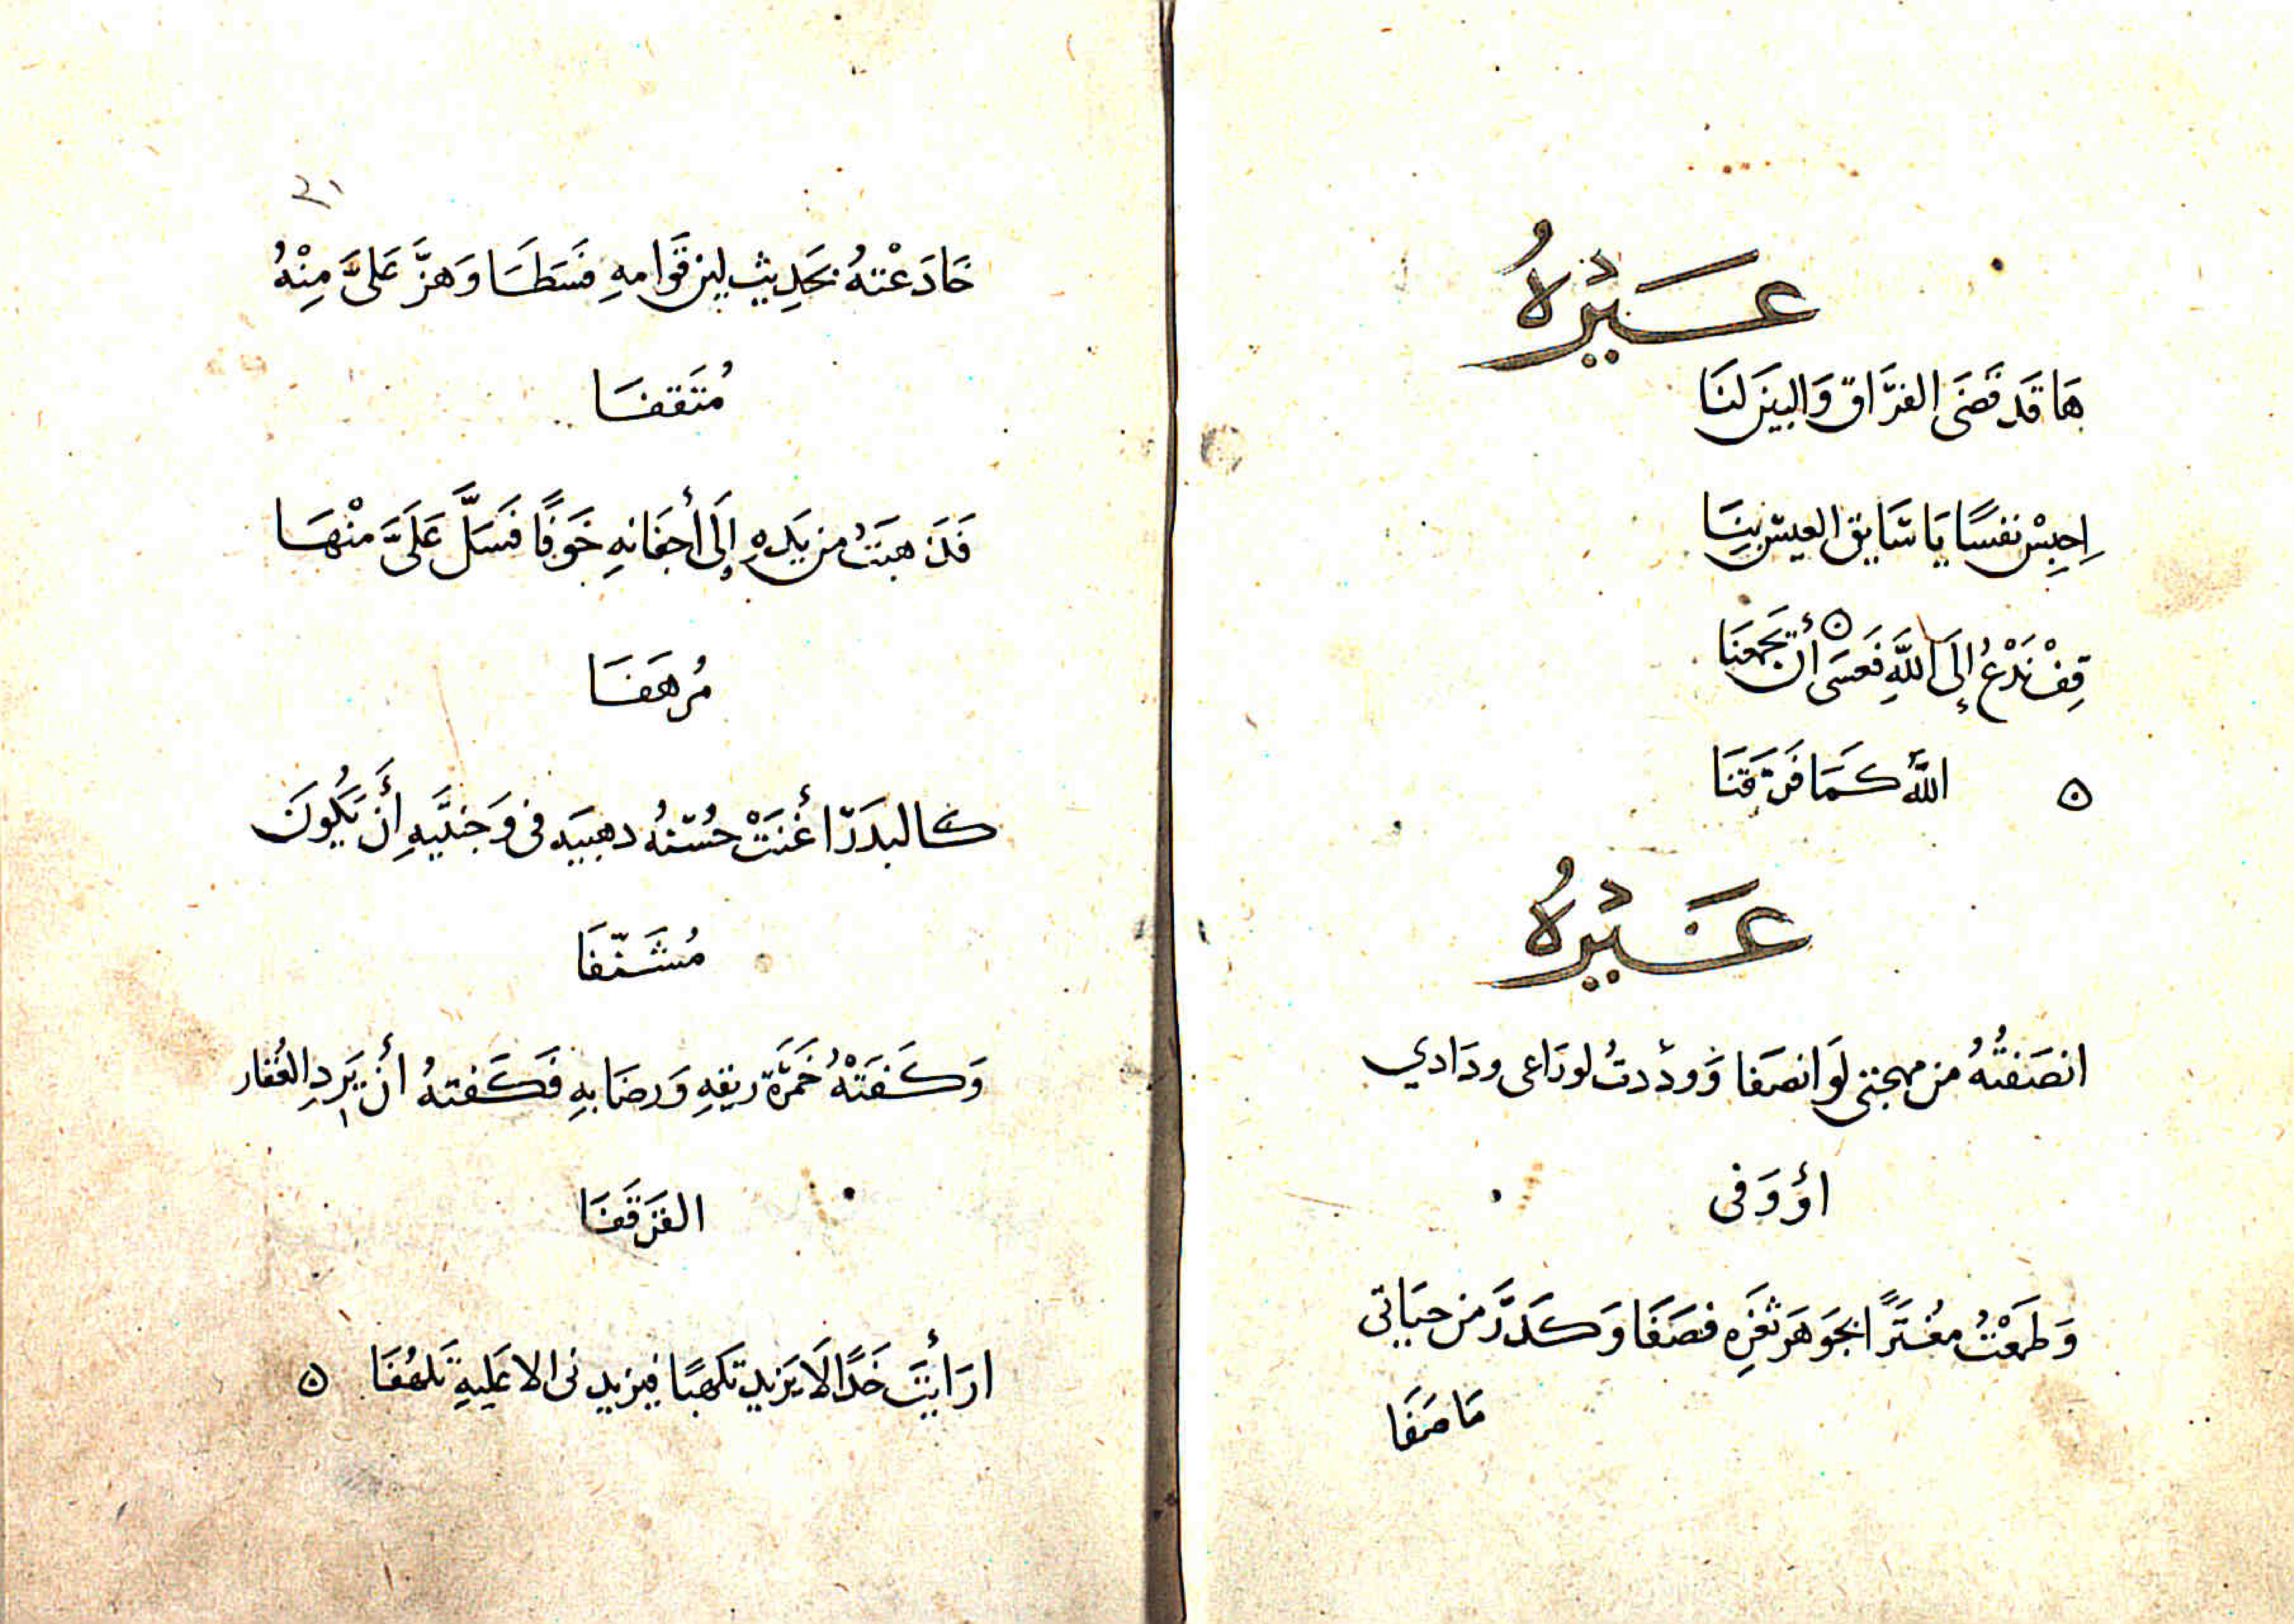 غَيْرُهُ
هَا قَد قَضَى الفرَّاق وَالبينَ لنَا
اِحبِسْ نفسًا يَا سَايق العيس بِنَا
قِفْ نَدْعُ إِلَى اللَّهِ فَعَسَى أن تجمعَنَا
اللَّهُ كَمَا فَرَّقَنَا
غَيْرُهُ
انصَفتُهُ من مهجتى لَو انصَفا وَودَدتُ لو رَاعى ودَادي
اؤ وَفى
وَطَمَعْتُ مغُتَرًا بجَوَهَر ثغَرِهِ فصَفَا وَكَدَّرَ من حيَاتى
مَا صَفَا
٢١
خَادَعْتهُ بحَدِيثِ لين قَوَامهِ فَسَطَا وَهزَّ عَلىَّ مِنْهُ
مُثَقفَا
هبَتُ من يَدِهِ إِلَى أَجفَانهِ خَوفًا فَسَلَّ عَلَىَّ مِنْهَا
مُرهَفَا
كالبدَر أغنَتْ حُسْنهُ فى وَجنتَيهِ أَن يَكُونَ
مُشَنّفَا
وَكَفَتْهُ خَمَرَة ريقهِ وَرضَابهِ فَكَفتهُ أن يَرِدِ العُقار
القَرقَفَا
ارَأَيتَ خَدًا لاَ يَزيد تَلهبًا فيزيدنى الا عَليهِ تَلهُفَا